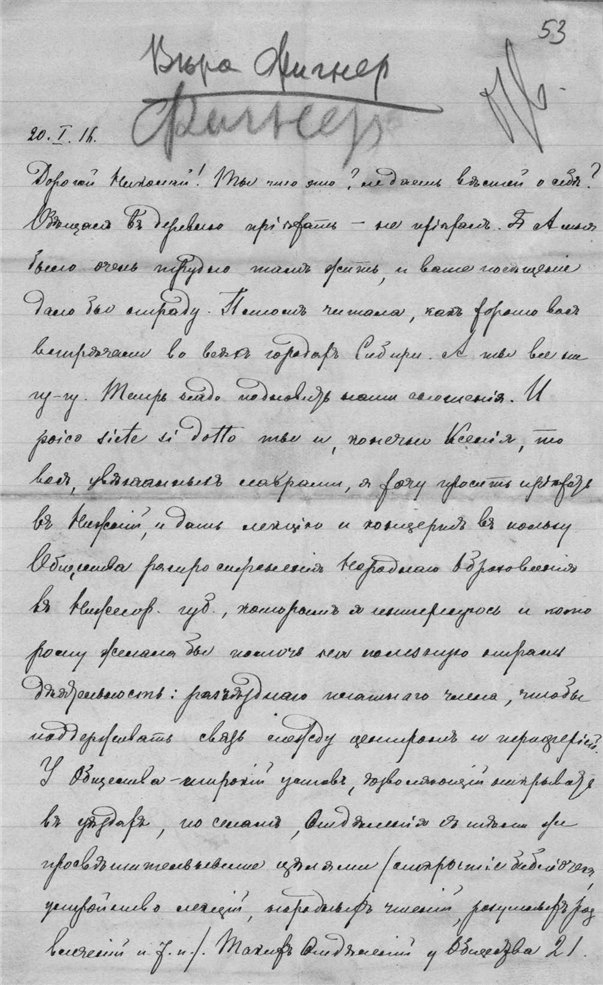 53
Вѣра Фигнер
Фигнер
20. I. 16.
Дорогой Николай! Ты что это? не даешь вѣстей о себѣ?
Обѣщался въ деревню пріѣхать – не пріѣхалъ. А мнѣ
было очень трудно тамъ жить, и ваше посѣщеніе
дало бы отраду. Потомъ читала, какъ хорошо васъ
встрѣчали во всѣхъ городахъ Сибири. А ты все ни
гу-гу. Теперь надо подновить наши сношенія. И
poico siete si dotto ты и, конечно Ксенія, то
васъ, увѣнчанныхъ лаврами, я хочу просить пріѣхать
въ Нижній, и дать лекцію и концертъ въ пользу
Общества распространенія Народнаго Образованія
въ Нижегор. губ., которымъ я интересуюсь и кото
рому желала бы помочь
дѣятельность: разъѣзднаго платнаго члена, чтобы
поддерживать связь между центромъ и периферіей.
У Общества – широкій уставъ, дозволяющій открывать
въ уѣздахъ, по селамъ, Отдѣленія съ тѣми же
просвѣтительными цѣлями (открытіе библіотекъ,
устройство лекцій, народныхъ чтеній, разумныхъ раз
влеченій и т. п.). Такихъ Отдѣленій у Общества 21.